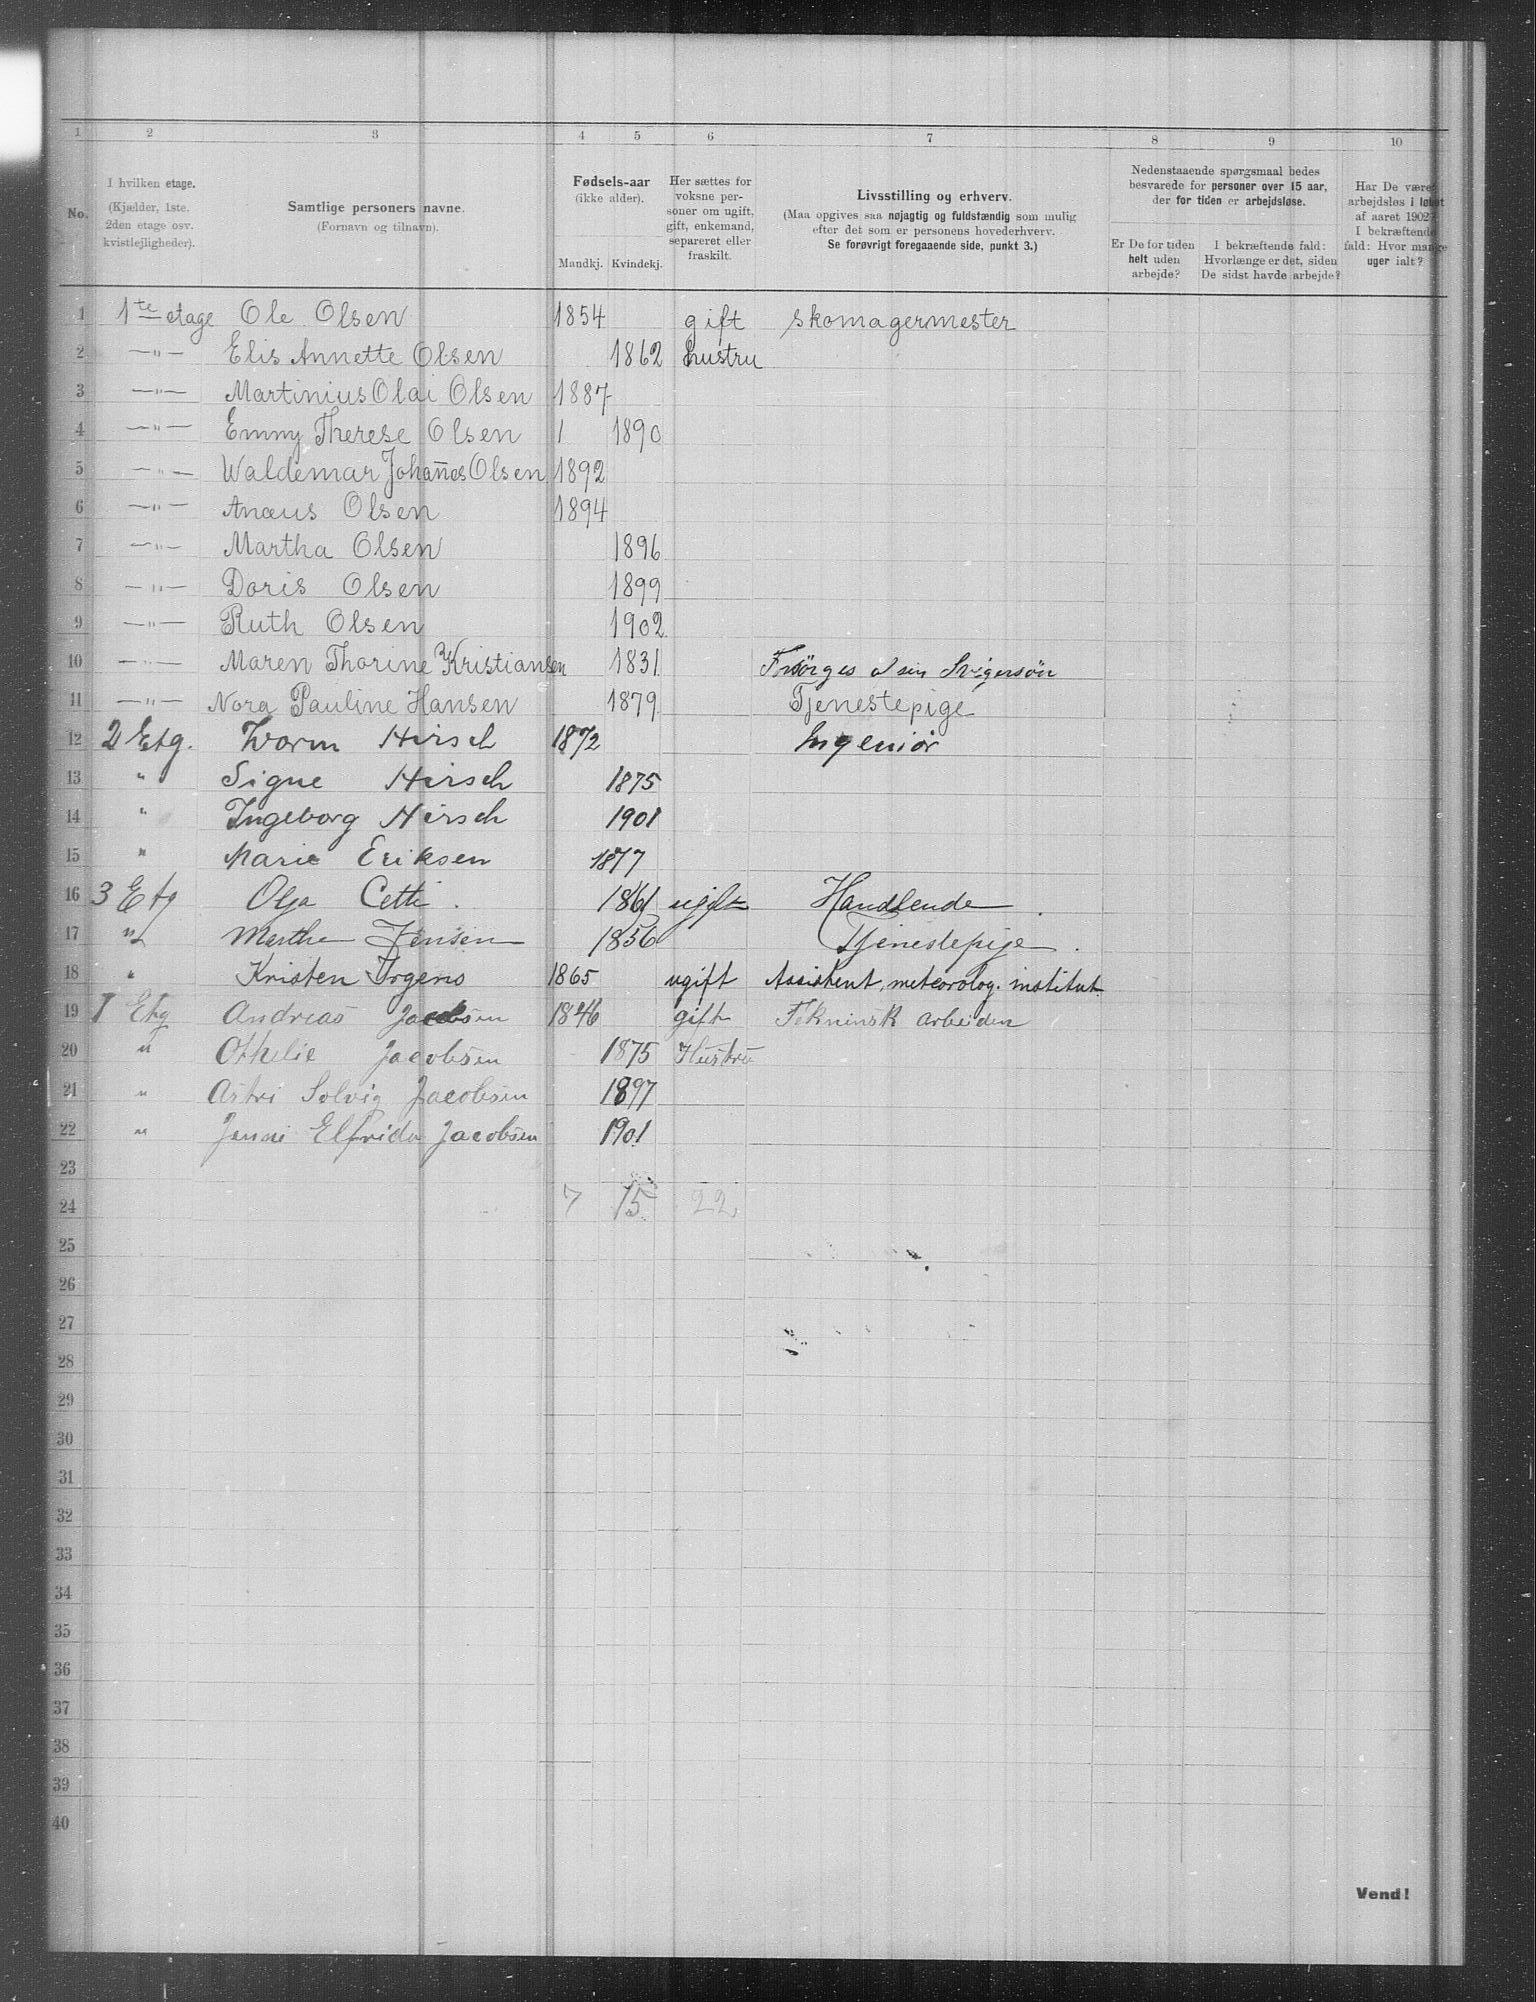 1 2 3 4 5 6 7 8 9 10
No.
I hvilken etage.
(Kjælder, 1ste.
2den etage osv.
kvistlejligheder).
Samtlige personers navne.
(Fornavn og tilnavn).
Fødsels-aar
(ikke alder).
Mandkj. Kvindekj.
Her sættes for
voksne per-
soner om ugift,
gift, enkemand,
separeret eller
fraskilt.
Livsstilling og erhverv.
(Maa opgives saa nøjagtig og fuldstændig som mulig
efter det som er personens hovederhverv.
Se forøvrigt foregaaende side, punkt 3.)
Nedenstaaende spørgsmaal bedes
besvarede for personer over 15 aar,
der for tiden er arbejdsløse.
Er De for tiden
helt uden
arbejde?
I bekræftende fald:
Hvorlænge er det, siden
De sidst havde arbejde?
Har De været
arbejdsløs i løbet
af aaret 1902?
I bekræftende
fald: Hvor mange
uger ialt?
1 1te etage Ole Olsen 1854 gift skomagermester
2 —"— Elis Annette Olsen 1862 hustru
3 —"— Martinius Olai Olsen 1887
4 —"— Emmy Therese Olsen 1 1890
5 —"— Waldemar Johannes Olsen 1892
6 —"— Anæus Olsen 1894
7 —"— Martha Olsen 1896
8 —"— Doris Olsen 1899
9 —"— Ruth Olsen 1902
10 —"— Maren Thorine Kristiansen 1831 Forsørges af sin Svigersøn
11 —"— Nora Pauline Hansen 1879 Tjenestepige
12 2 Etg. Worm Hirsch 1872 Ingeniør
13 " Signe Hirsch 1875
14 " Ingeborg Hirsch 1901
15 " Marie Eriksen 1877
16 3 Etg Olga Cetti 1861 ugift Handlende
17 " Marthe Jensen 1856 Tjenestepige
18 " Kristen Irgens 1865 ugift Assistent, meteorolog. institut
19 1 Etg Andreas Jacobsen 1846 gift Tekninsk arbeider
20 " Othelie Jacobsen 1875 Hustru
21 " Astri Solvig Jacobsen 1897
22 " Jenni Elfrida Jacobsen 1901
23
24 7 15 22
25
26
27
28
29
30
31
32
33
34
35
36
37
38
39
40
Vend!